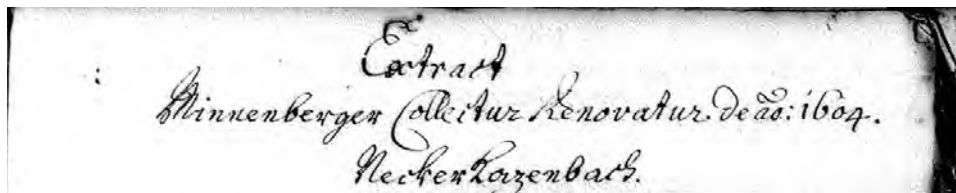 Extract
Minnenberger Collectur Renovatur. de ao: 1604.
NeckerKazenbach.